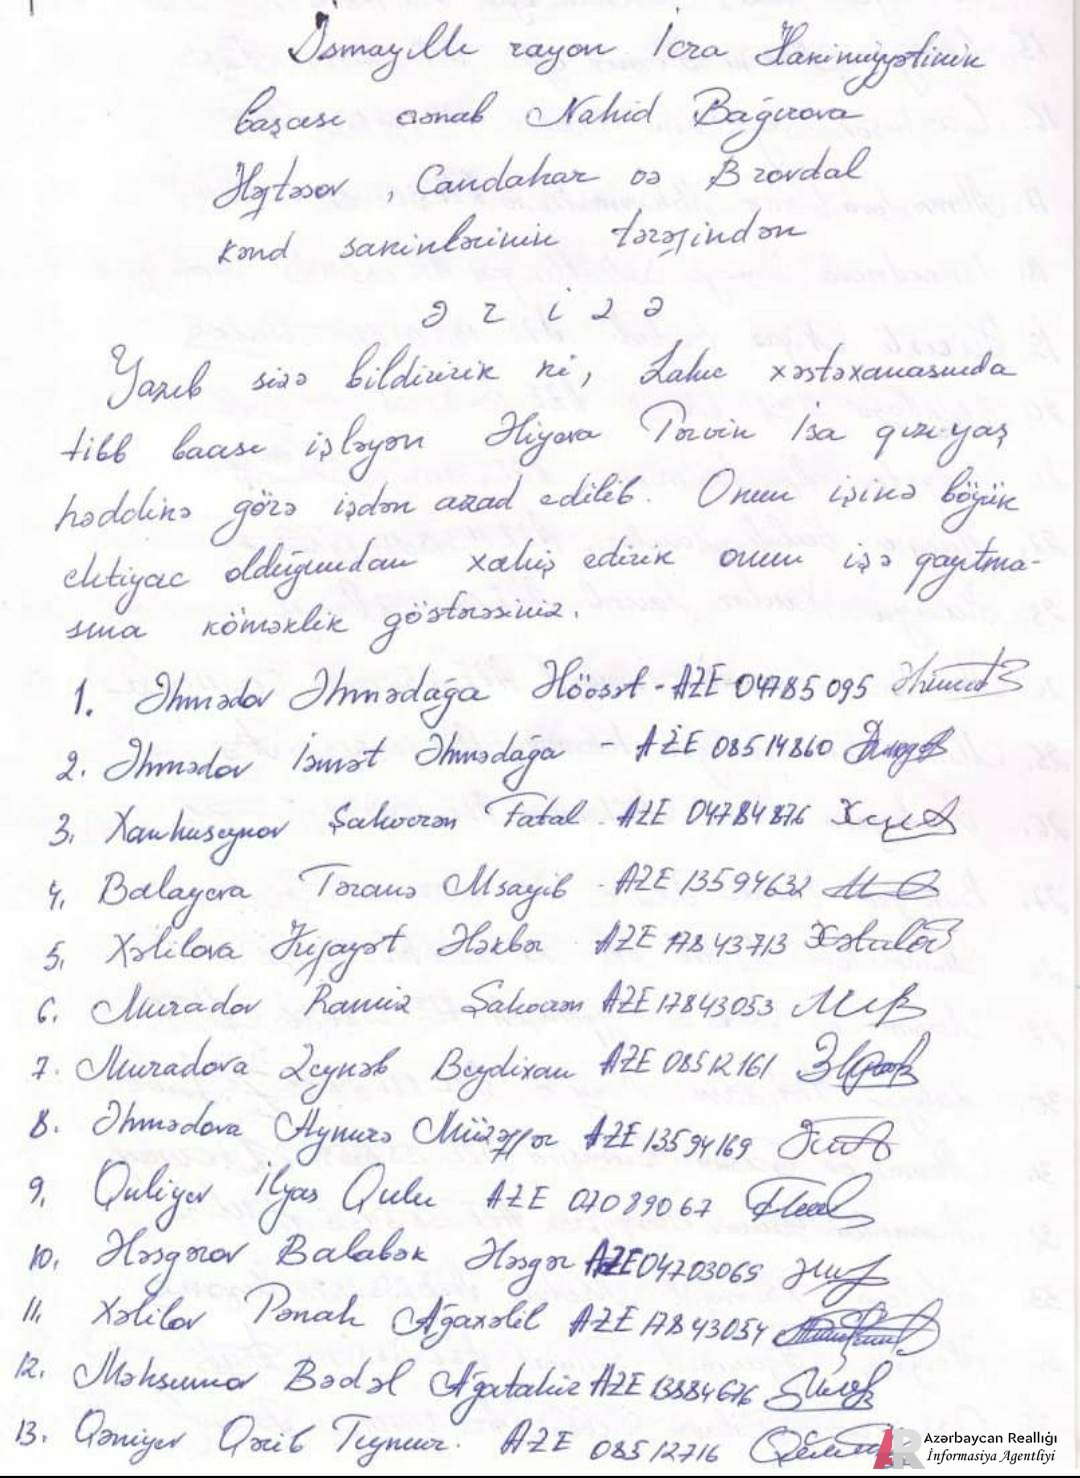 İsmayıllı rayon İcra Hakimiyyətinin
başçısı cənab Nahid Bağırova
Həftəsov, Candahar və Brovdal
kənd sakinlərinin tərəfindən
Ə r i z ə
Yazıb sizə bildiririk ki, Lahıc xəstəxanasında
tibb bacısı işləyən Əliyeva Pərvin İsa qızı yaş
həddinə görə işdən azad edilib. Onun işinə böyük
ehtiyac olduğundan xahiş edirik onun işə qayıtma-
sına köməklik göstərəsiniz.
1. Əhmədov Əhmədağa - AZE 04785095
2. Əhmədov İsmət Əhmədağa - AZE 08514860
3. Xanhuseynov Şahverən Fatal - AZE 04784876
4. Balayeva Təranə Msayib - AZE 13594632
5. Xəlilova Kifayət Ələkbər - AZE 17843713
6. Muradov Ramiz Şahverən AZE 17843053
7. Muradova Zeynəb Beydixan AZE 08512161
8. Əhmədova Aynurə Müzəffər AZE 13594169
9. Quliyev İlyas Qulu AZE 07089067
10. Ələsgərov Balabək Ələsgər AZE 04703065
11. Xəlilov Pənah Ağaxəlil AZE 17843054
12. Məhsumov Bədəl Ağatahir AZE 13884676
13. Qəniyev Qərib Teymur. AZE 08512716
AR Azərbaycan Reallığı
İnformasiya Agentliyi